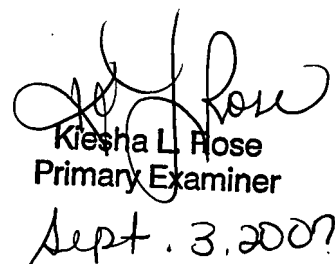 Kiesha L. Rose
Primary Examiner
Sept. 3, 2007